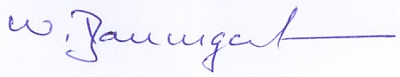 W. Baumgart